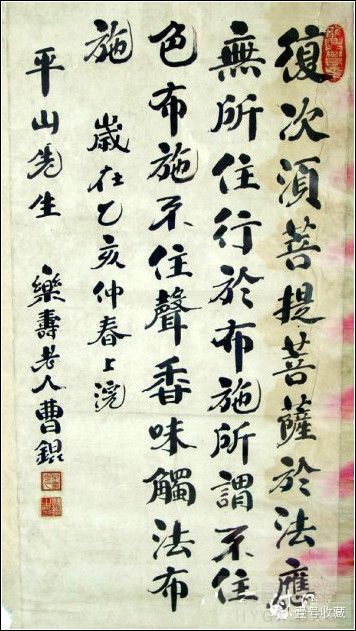 復次須菩提菩薩於法應
無所住行於布施所謂不住
色布施不住聲香味觸法布
施
歲在乙亥仲春上浣
平山先生
樂壽老人曹錕
壹号收藏